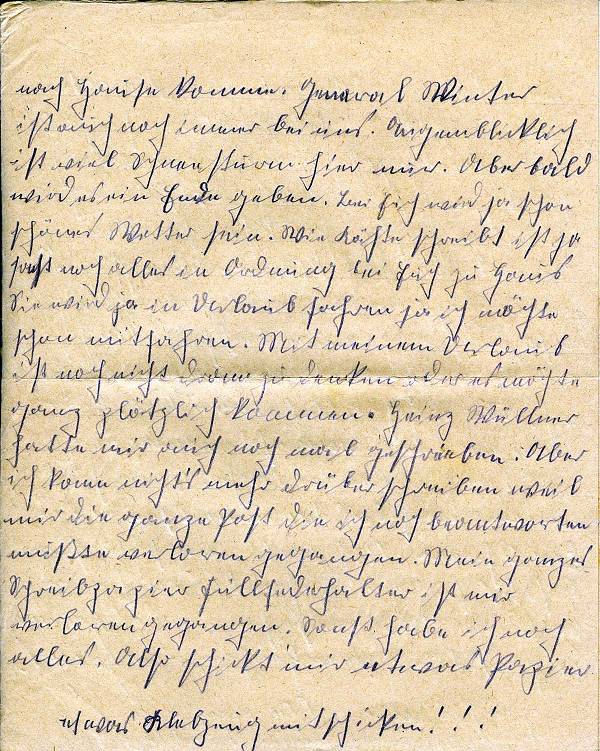 nach Hause komme. General Winter
ist auch noch immer bei uns. Augenblicklich
ist viel Schneesturm hier nur. Aber bald
wird es ein Ende geben. Bei Euch wird ja schon
schönes Wetter sein. Wie Käthe schreibt ist ja
sonst noch alles in Ordnung bei Euch zu Haus
Sie wird ja in Urlaub fahren ja ich möchte
schon mitfahren. Mit meinem Urlaub
ist noch nicht dran zu denken oder es möchte
ganz plötzlich kommen. Heinz Wüllner
hatte mir auch noch mal geschrieben. Aber
ich kann nicht's mehr drüber schreiben weil
mir die ganze Post die ich noch beantworten
mußte verloren gegangen. Mein ganzes
Schreibpapier Füllfederhalter ist mir
verloren gegangen. Sonst habe ich noch
alles. Also schickt mir etwas Papier
etwas Klebzeug mitschicken! ! !